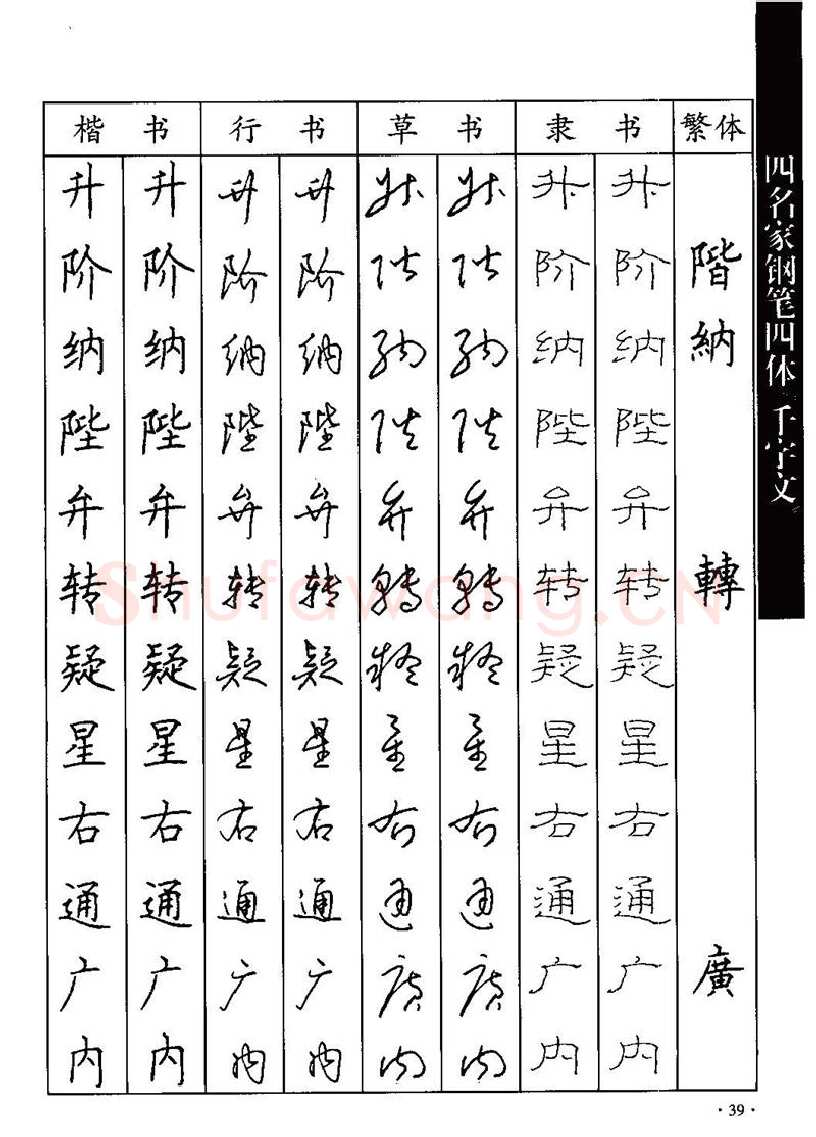 四名家钢笔四体千字文
楷书 行书 草书 隶书 繁体
升 升 升 升 升 升 升 升
阶 阶 阶 阶 阶 阶 阶 阶 階
纳 纳 纳 纳 纳 纳 纳 纳 納
陛 陛 陛 陛 陛 陛 陛 陛
弁 弁 弁 弁 弁 弁 弁 弁
转 转 转 转 轉 轉 转 转 轉
疑 疑 疑 疑 疑 疑 疑 疑
星 星 星 星 星 星 星 星
右 右 右 右 右 右 右 右
通 通 通 通 通 通 通 通
广 广 广 广 廣 廣 广 广 廣
内 内 内 内 内 内 内 内
Shufawang.CN
·39·